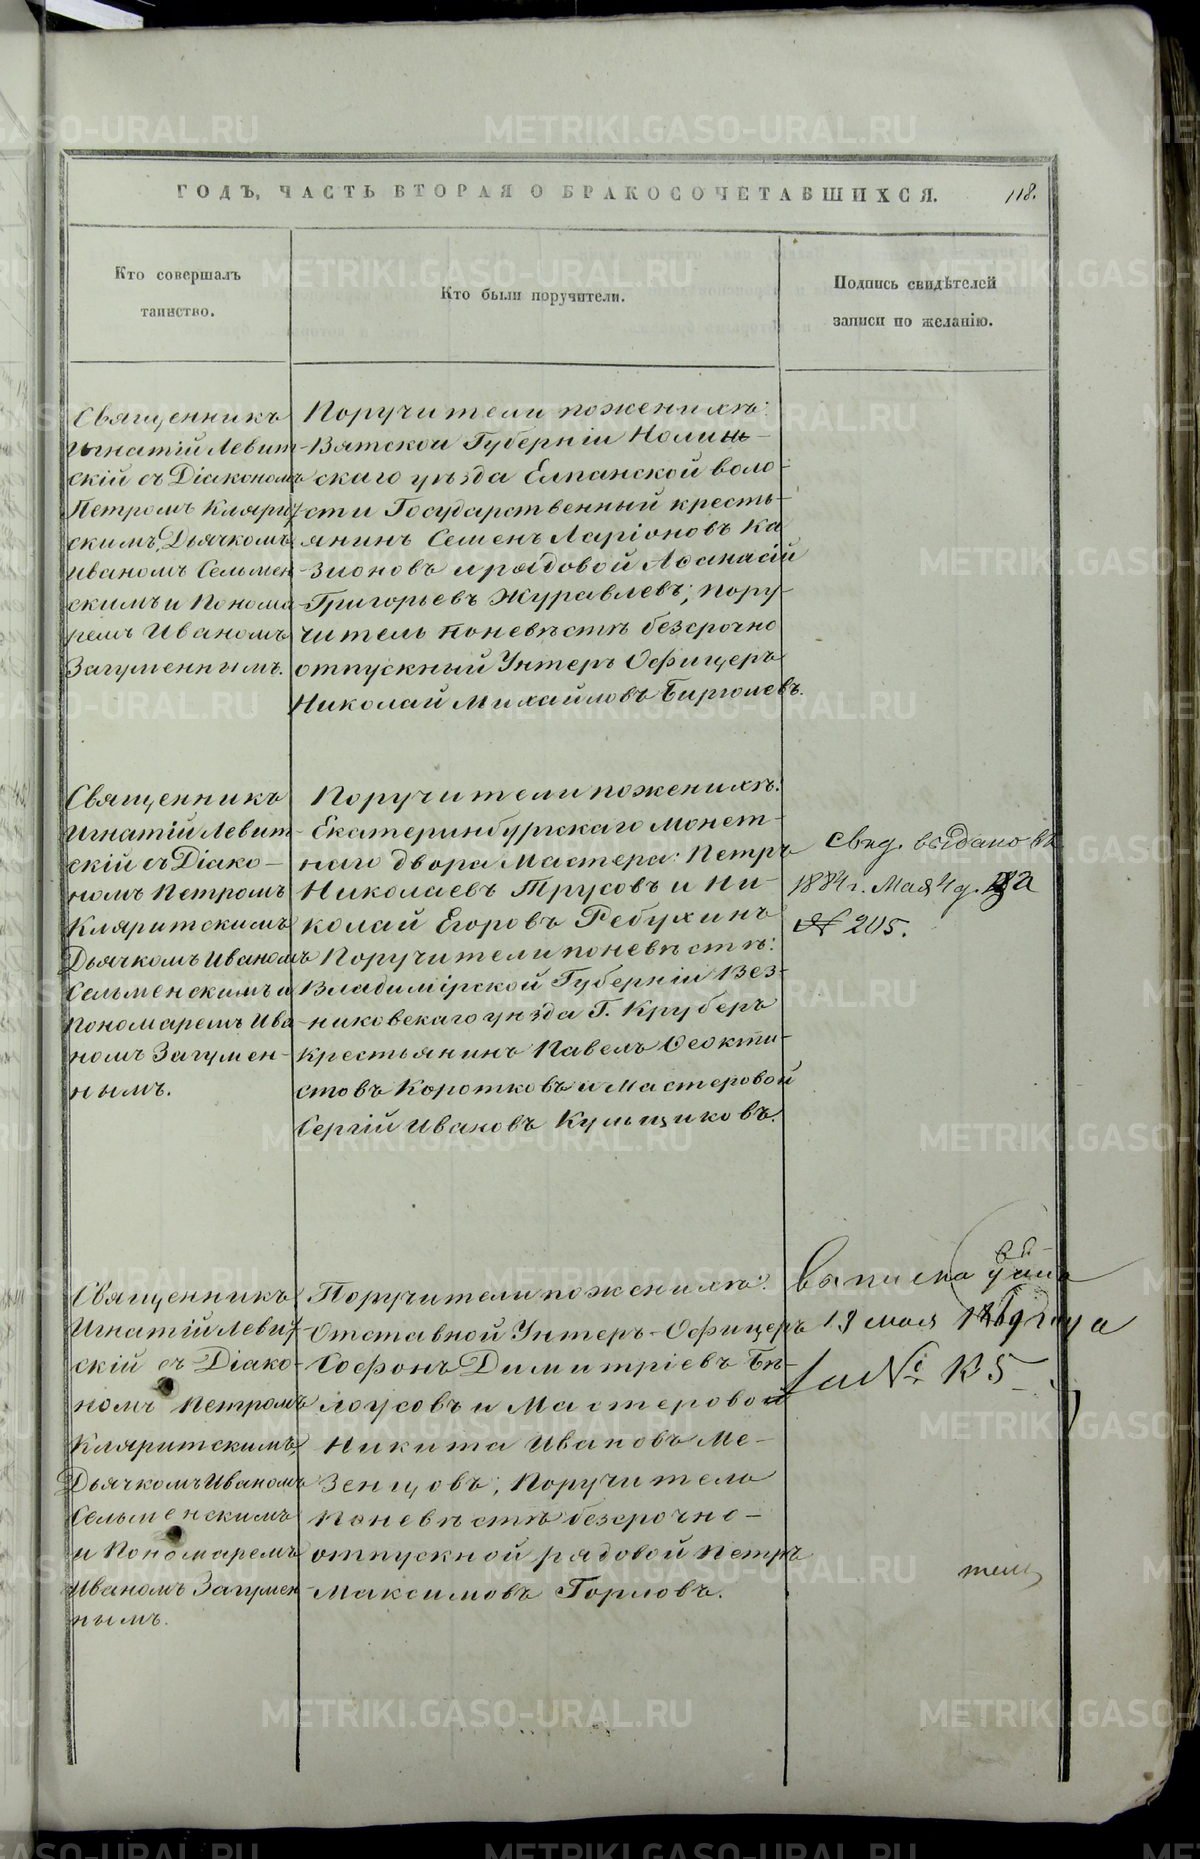 ГОДЪ, ЧАСТЬ ВТОРАЯ О БРАКОСОЧЕТАВШИХСЯ.
118.
Кто совершалъ
таинство.
Кто были поручители.
Подпись свидѣтелей
записи по желанію.
Священникъ
Игнатій Левит-
скій съ Діакономъ
Петромъ Кляритскимъ,
Дьячкомъ
Иваномъ Сельмен-
скимъ и Понома-
ремъ Иваномъ
Загуменнымъ.
Поручители по женихѣ:
Вятской Губерніи Нолин-
скаго уѣзда Елпанской воло-
сти Государственный кресть-
янинъ Семенъ Ларіоновъ Ка-
зионовъ и рядовой Аѳанасій
Григорьевъ Журавлевъ; пору-
читель по невѣстѣ безсрочно
отпускный Унтеръ Офицеръ
Николай Михайловъ
Священникъ
Игнатій Левит-
скій съ Діако-
номъ Петромъ
Кляритскимъ
Дьячкомъ Иваномъ
Сельменскимъ и
Пономаремъ Ива-
номъ Загумен-
нымъ.
Поручители по женихѣ:
Екатеринбургскаго Монет-
наго двора Мастера: Петръ
Николаевъ Трусовъ и Ни-
колай Егоровъ Ребухинъ
Поручители по невѣстѣ:
Владимірской Губерніи Вез-
никовскаго уѣзда Г. Круберъ
крестьянинъ Павелъ Ѳеокти-
стовъ Коротковъ и Мастеровой
Сергій Ивановъ Кульщиковъ.
Свид. выдано въ
1884 г. Мая 4 д. за
№ 205.
Священникъ
Игнатій Левит-
скій съ Діако-
номъ Петромъ
Кляритскимъ,
Дьячкомъ Иваномъ
Сельменскимъ
и Пономаремъ
Иваномъ Загумен-
нымъ.
Поручители по женихѣ:
Отставной Унтеръ-Офицеръ
Софонъ Димитріевъ Бѣ-
лоусовъ и Мастеровой
Никита Ивановъ Ме-
зенцовъ; Поручитель
по невѣстѣ безсрочно-
отпускной рядовой Петръ
Максимовъ Горловъ.
выписка вы-
дана
13 мая года
за № 135